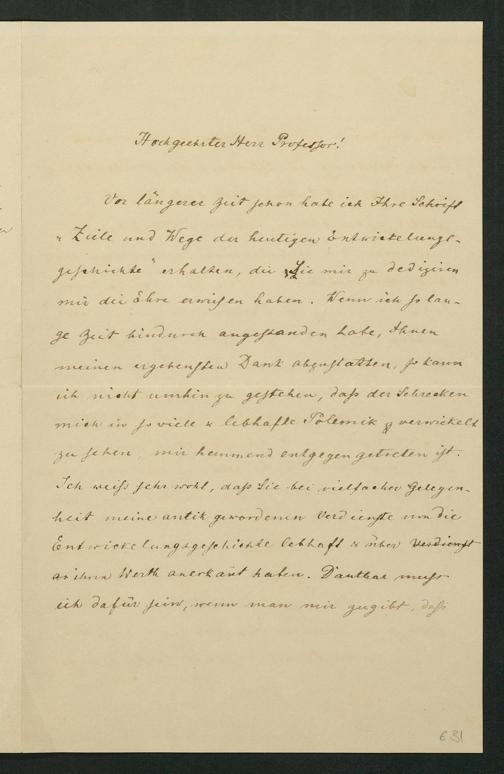 Hochgeehrter Herr Professor!
Vor längerer Zeit schon habe ich Ihre Schrift
„Ziele und Wege der heutigen Entwickelungs-
geschichte" erhalten, die Sie mir zu dediziren
mir die Ehre erwiesen haben. Wenn ich so lan-
ge Zeit hindurch angestanden habe, Ihnen
meinen ergebensten Dank abzustatten, so kann
ich nicht umhin zu gestehen, daß der Schrecken
mich in so viele & lebhafte Polemik verwickelt
zu sehen, mir hemmend entgegen getreten ist.
Ich weiß sehr wohl, daß Sie bei vielfacher Gelegen-
heit meine antik gewordenen Verdienste um die
Entwickelungsgeschichte lebhaft & über Verdienst
an ihrem Werth anerkant haben. Dankbar muß
ich dafür sein, wenn man mir zugibt, daß
631